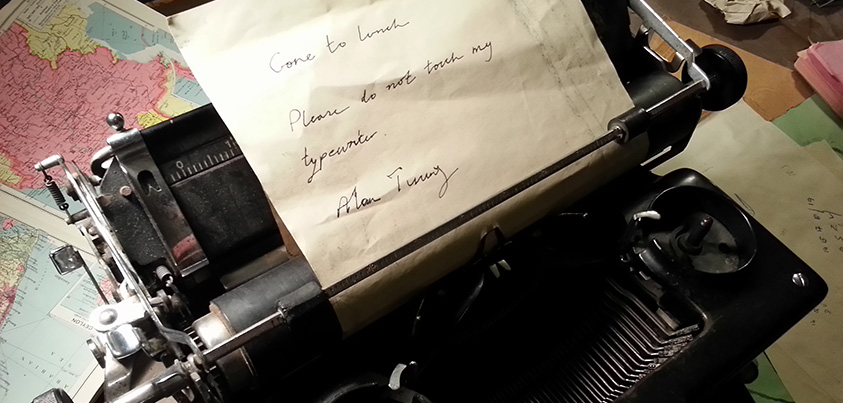 Gone to lunch
Please do not touch my
typewriter.
Alan Turing
CEYLON